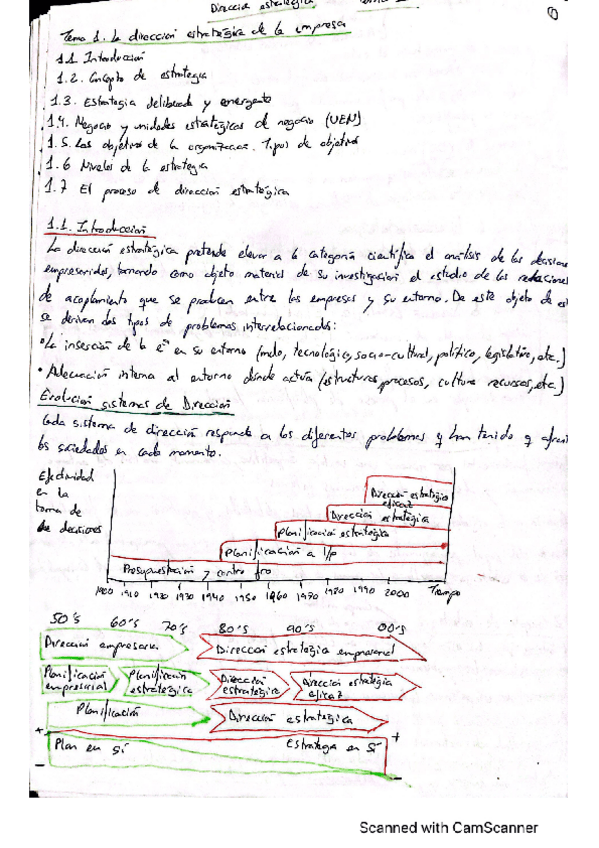 Dirección estratégica
Tema 1. La dirección estratégica de la empresa
1.1. Introducción
1.2. Concepto de estrategia
1.3. Estrategia deliberada y emergente
1.4. Negocio y unidades estratégicas de negocio (UEN)
1.5. Los objetivos de la organización. Tipos de objetivos
1.6 Niveles de la estrategia
1.7 El proceso de dirección estratégica
1.1. Introducción
La dirección estratégica pretende elevar a la categoría científica el análisis de las decisiones
empresariales, tomando como objeto material de su investigación el estudio de las relaciones
de acoplamiento que se producen entre las empresas y su entorno. De este objeto de
se derivan dos tipos de problemas interrelacionados:
• La inserción de la eª en su entorno (mdo, tecnológico, socio-cultural, político, legislativo, etc.)
• Adecuación interna al entorno dónde actúa (estructuras, procesos, cultura recursos, etc.)
Evolución sistemas de Dirección
Cada sistema de dirección responde a los diferentes problemas q han tenido q
las sociedades en cada momento.
Efectividad
en la
toma de
decisiones
Dirección estratégica
eficaz
Dirección estratégica
Planificación estratégica
Planificación a l/p
Presupuestación y control fro
1900 1910 1920 1930 1940 1950 1960 1970 1980 1990 2000 Tiempo
50's 60's 70's 80's 90's 00's
Dirección empresarial
Dirección estratégica empresarial
Planificación
empresarial
Planificación
estratégica
Dirección
estratégica
Dirección estratégica
eficaz
Planificación
Dirección estratégica
+ +
Plan en sí
Estrategia en sí
- -
Scanned with CamScanner